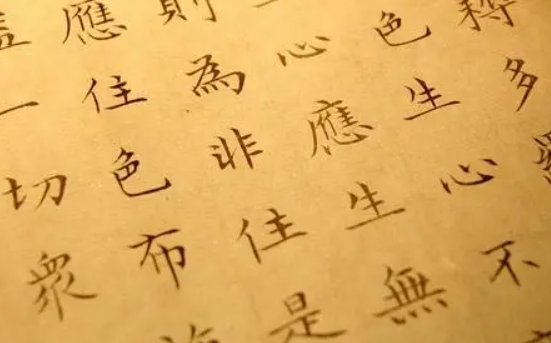 耨多
色生心不
心應生無
則為非住是
應住色布施
益一切眾